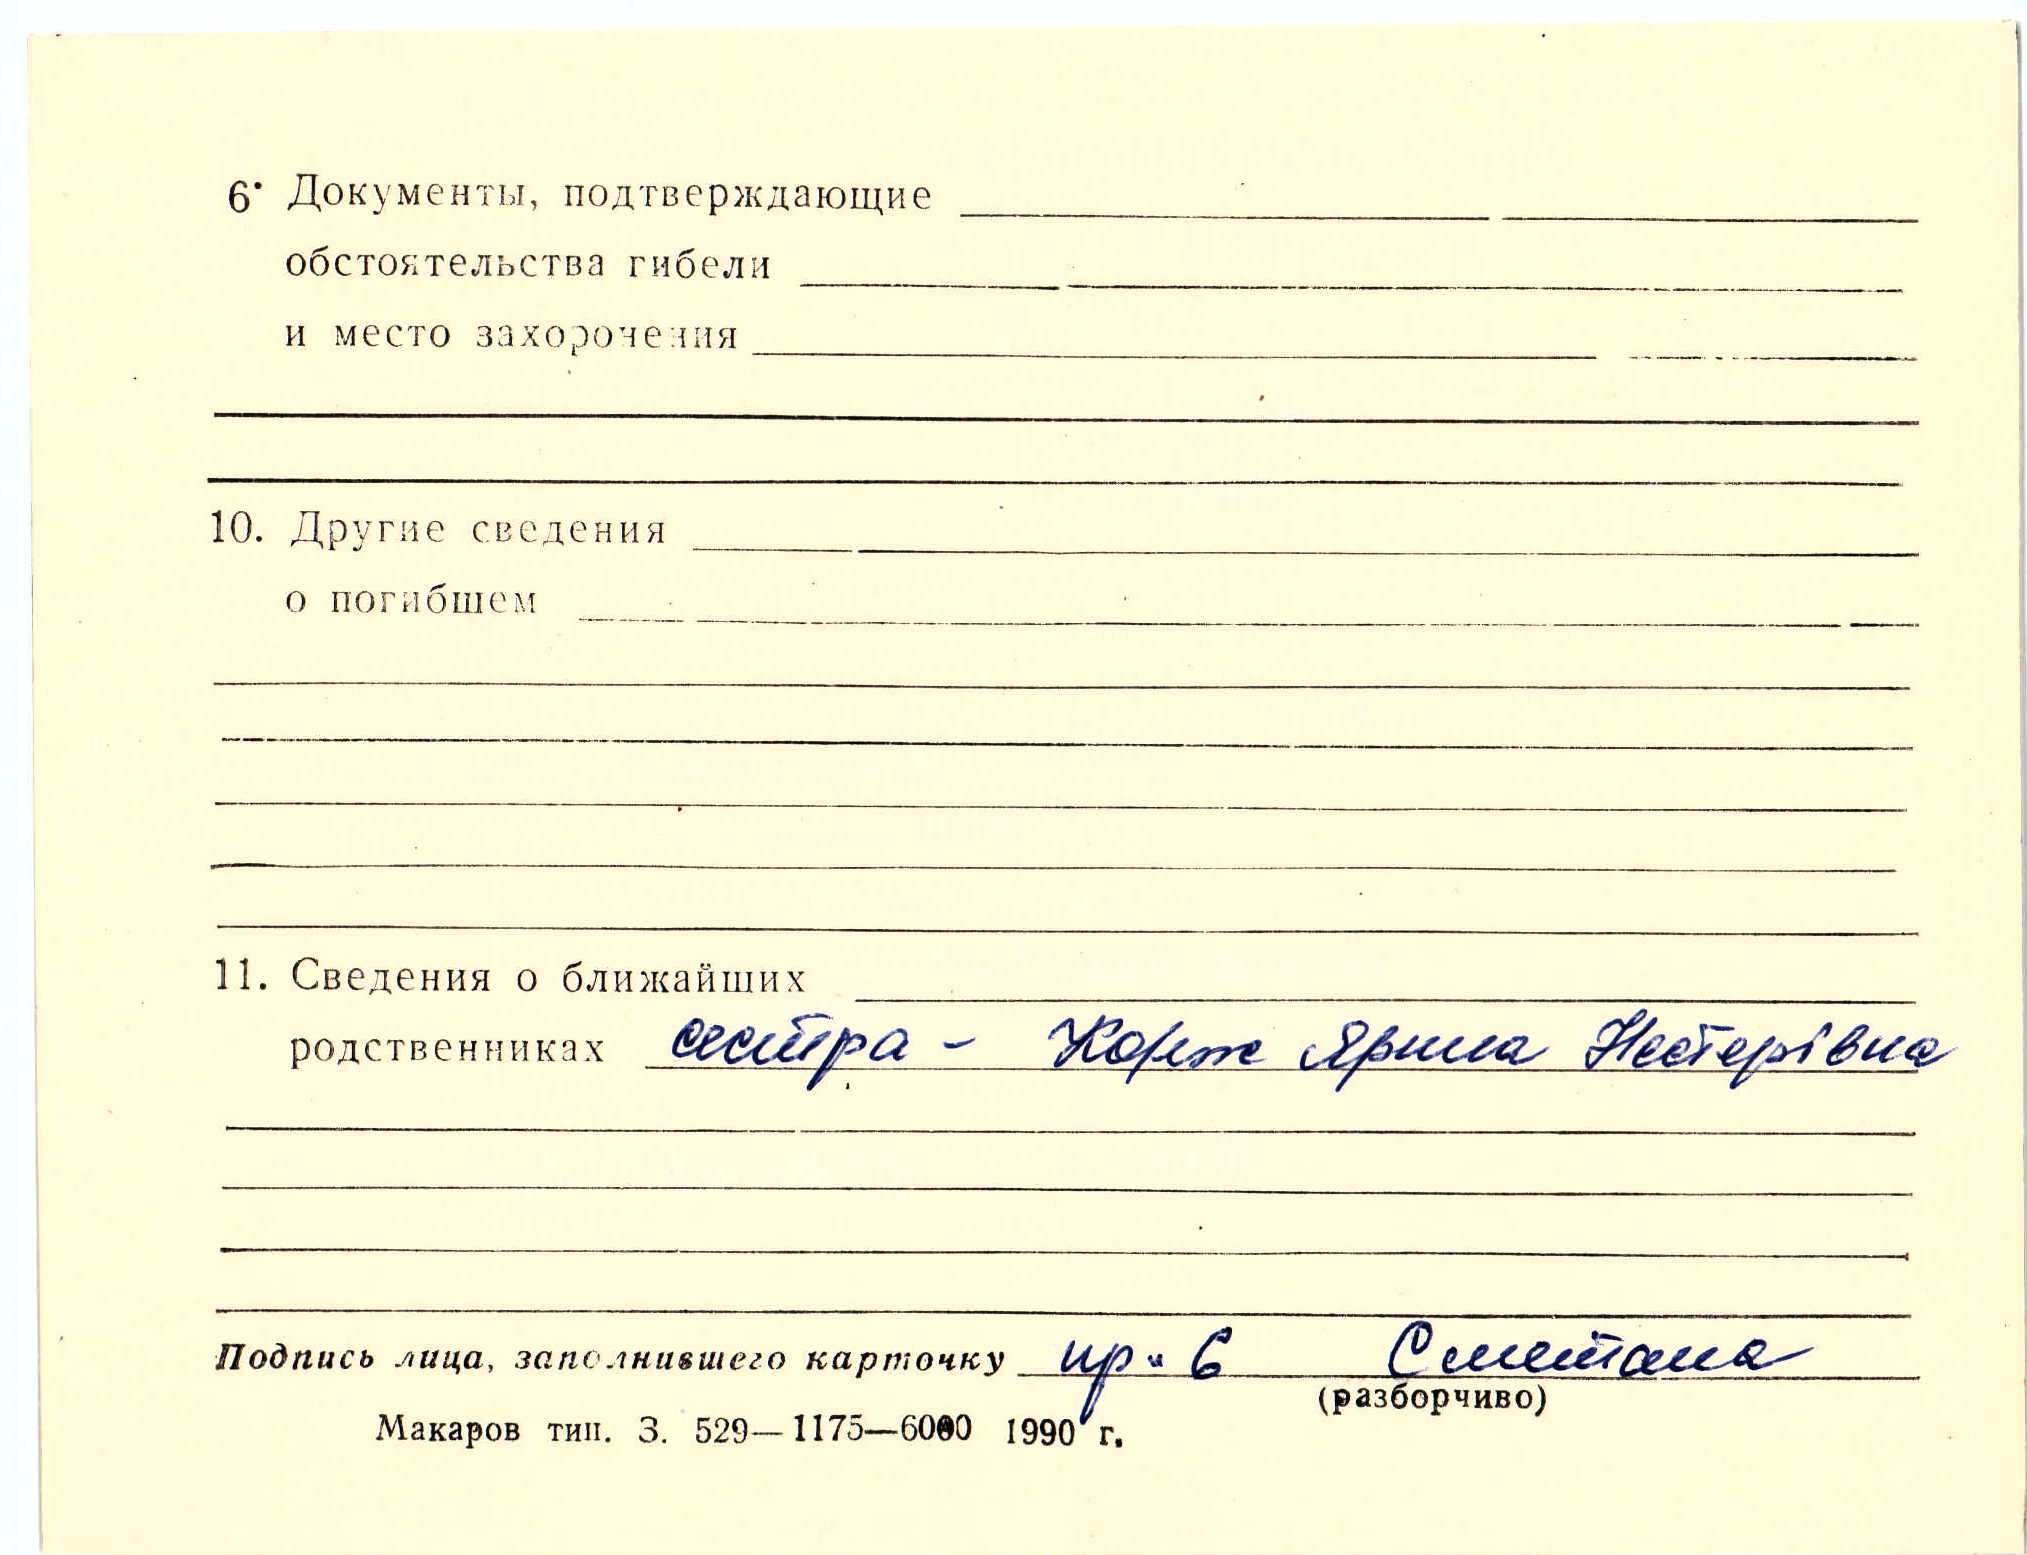 6. Документы, подтверждающие
обстоятельства гибели
и место захорочения
10. Другие сведения
о погибшем
11. Сведения о ближайших
родственниках сестра - Корж Ярина Нестерівна
Подпись лица, заполнившего карточку Сметана
(разборчиво)
Макаров тип. З. 529—1175—6000 1990 г.